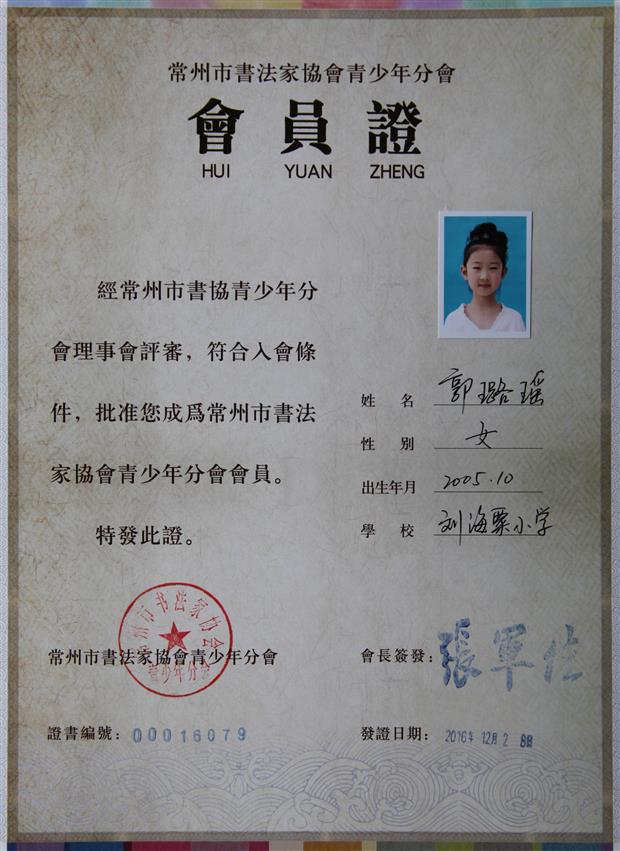 常州市書法家協會青少年分會
會員證
HUI YUAN ZHENG
經常州市書協青少年分
會理事會評審，符合入會條
件，批准您成爲常州市書法
家協會青少年分會會員。
特發此證。
姓 名 郭璐瑶
性 别 女
出生年月 2005.10
學 校 刘海粟小学
常州市书法家协会
青少年分会
常州市書法家協會青少年分會
會長簽發：張軍仕
證書編號：00016079
發證日期：2016年 12月 2 8日